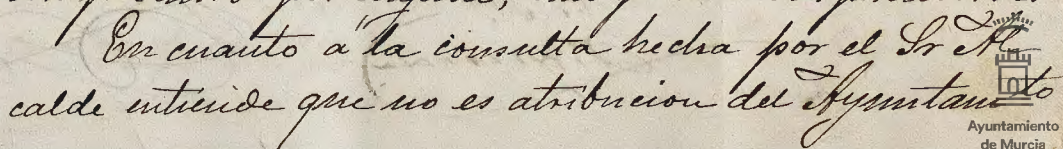 En cuanto á la consulta hecha por el Sr Al
calde entiende que no es atribucion del Ayuntamto
Ayuntamiento
de Murcia